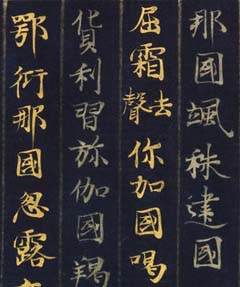 那國颯秣建國
屈霜去聲你加國喝
貨利習弥伽國羯
鄂衍那國忽露